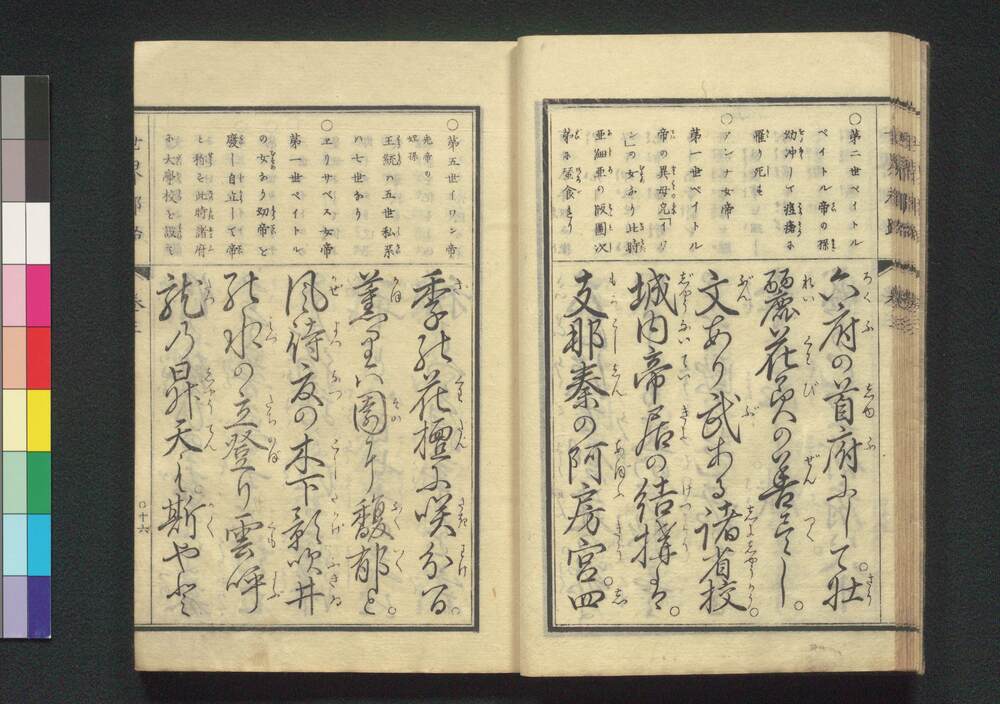 〇第二世ペイトル
ペイトル帝の孫
幼沖して痘瘡に
罹り死す
〇アンナ女帝
第一世ペイトル
帝の異母兄「イワ
ン」の女なり此時
亜細亜の版圖次
第に蚕食せり
六府の首府にして。壮
麗花美の善尽し。
文あり武ある諸省校。
城内帝居の結構は。
支那秦の阿房宮。四
〇第五世イワン帝
先帝の
姪孫
王統の五世私系
ハ七世なり
〇エリサベス女帝
第一世ペイトル
の女なり幼帝を
廃し自立して帝
と称を此時諸府
に大學校を設く
季の花壇に咲分る。
薫りハ園に馥郁と。
風待夏の木下影吹井
の水の立登り雲呼
龍の昇天も斯やと
世界都路
巻三
〇十六